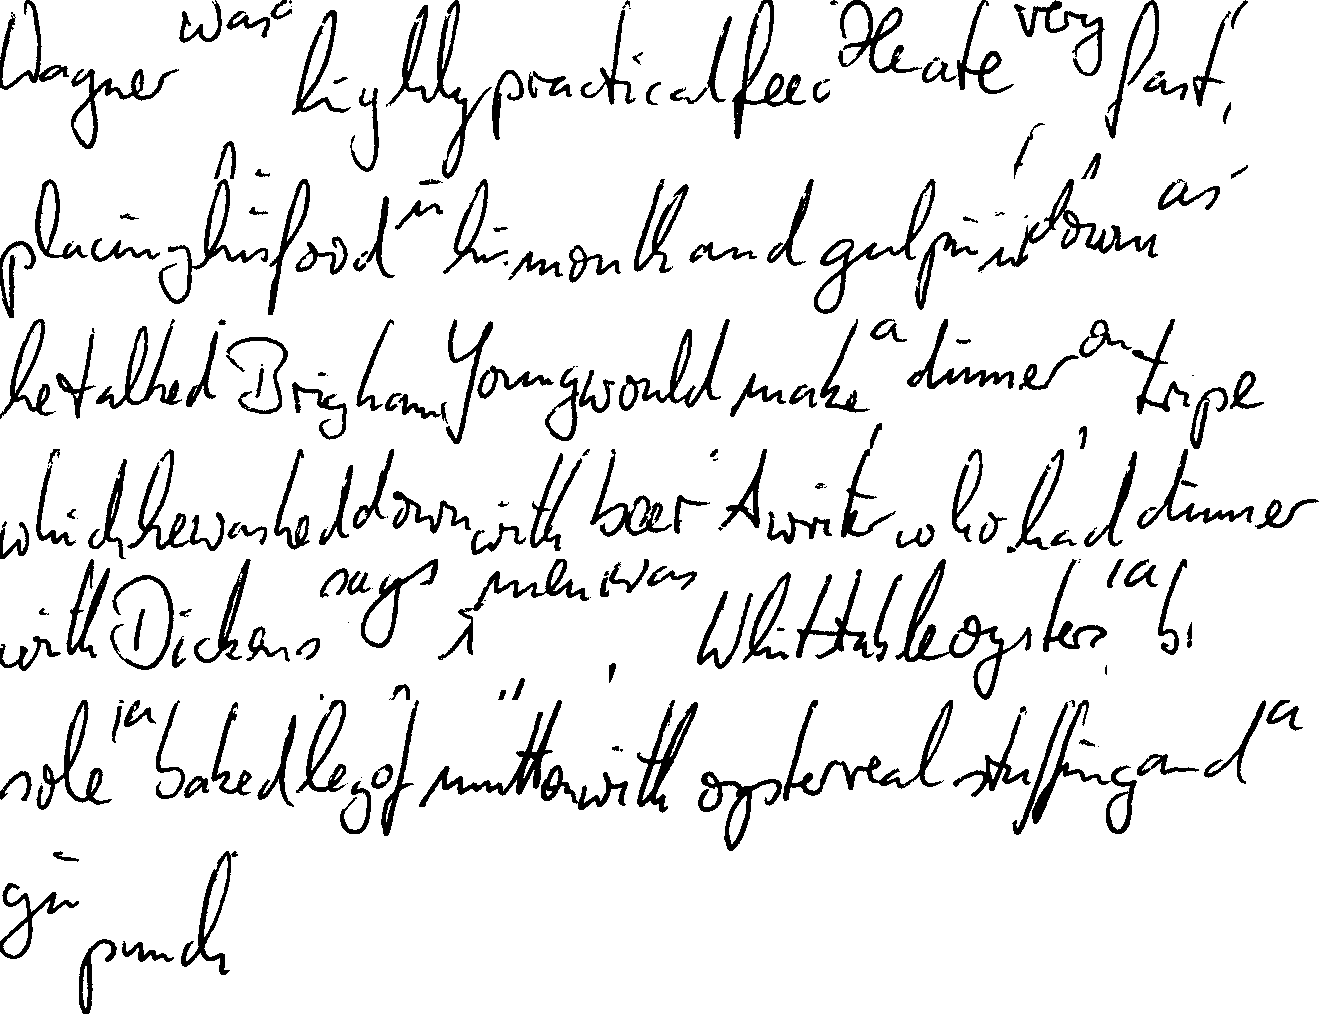 Wagner was a highly practical feed He ate very fast,
placing his food in his mouth and gulping it down as
he talked Brigham Young would make a dinner on tripe
which he washed down with beer A writer who had dinner
with Dickens says menu was Whitstable oysters, a
sole, a baked leg of mutton with oyster veal stuffing and a
gin punch